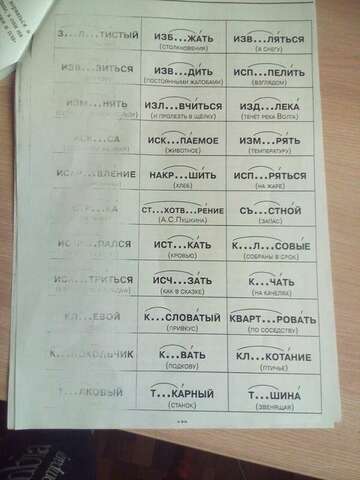 З...Л...ТИСТЫЙ
ИЗБ...ЖАТЬ
(СТОЛКНОВЕНИЯ)
ИЗВ...ЛЯТЬСЯ
(В СНЕГУ)
ИЗВ...ЗИТЬСЯ
ИЗВ...ДИТЬ
(ПОСТОЯННЫМИ ЖАЛОБАМИ)
ИСП...ПЕЛИТЬ
(ВЗГЛЯДОМ)
ИЗМ...НЯТЬ
ИЗЛ...ВЧИТЬСЯ
(И ПРОЛЕЗТЬ В ЩЕЛКУ)
ИЗД...ЛЕКА
(ТЕЧЁТ РЕКА ВОЛГА)
ИСК...СА
ИСК...ПАЕМОЕ
(ЖИВОТНОЕ)
ИЗМ...РЯТЬ
(ТЕМПЕРАТУРУ)
ИСПР...ВЛЕНИЕ
НАКР...ШИТЬ
(ХЛЕБ)
ИСП...РЯТЬСЯ
(НА ЖАРЕ)
СТ...ХОТВ...РЕНИЕ
(А.С.ПУШКИНА)
СЪ...СТНОЙ
(ЗАПАС)
ИСП...ПАЛСЯ
ИСТ...КАТЬ
(КРОВЬЮ)
К...Л...СОВЫЕ
(СОБРАНЫ В СРОК)
ИСХ...ТРИТЬСЯ
ИСЧ...ЗАТЬ
(КАК В СКАЗКЕ)
К...ЧАТЬ
(НА КАЧЕЛЯХ)
КЛ...ЕВОЙ
К...СЛОВАТЫЙ
(ПРИВКУС)
КВАРТ...РОВАТЬ
(ПО СОСЕДСТВУ)
К...ЛОКОЛЬЧИК
К...ВАТЬ
(ПОДКОВУ)
КЛ...КОТАНИЕ
(ПТИЧЬЕ)
Т...ЛКОВЫЙ
Т...КАРНЫЙ
(СТАНОК)
Т...ШИНА
(ЗВЕНЯЩАЯ)